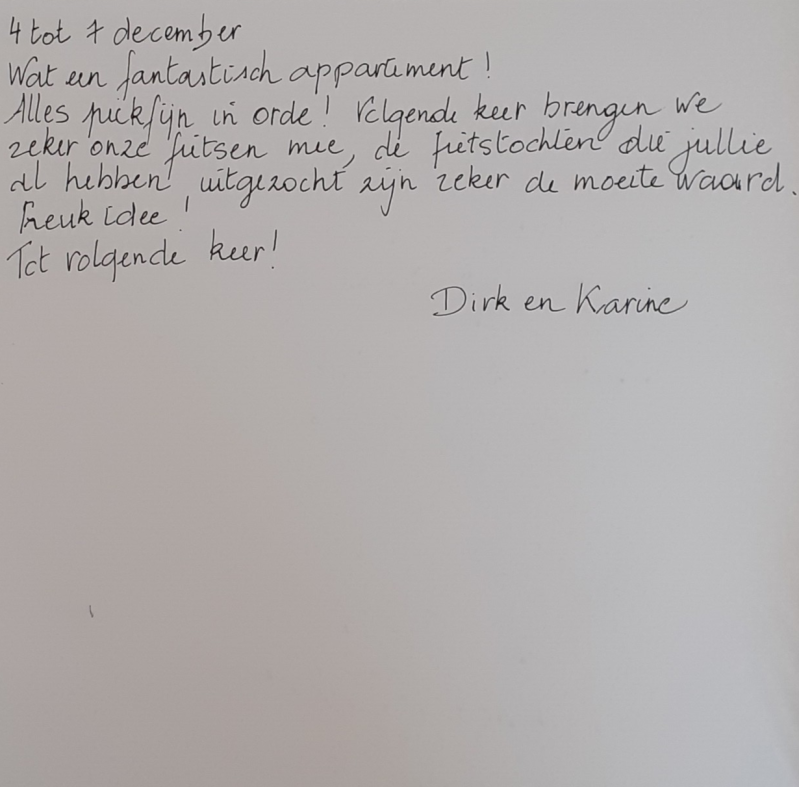 4 tot 7 december
Wat een fantastisch appartement!
Alles piekfijn in orde! Volgende keer brengen we
zeker onze fietsen mee, de fietstochten die jullie
al hebben uitgezocht zijn zeker de moeite waard.
Leuk idee!
Tot volgende keer!
Dirk en Karine